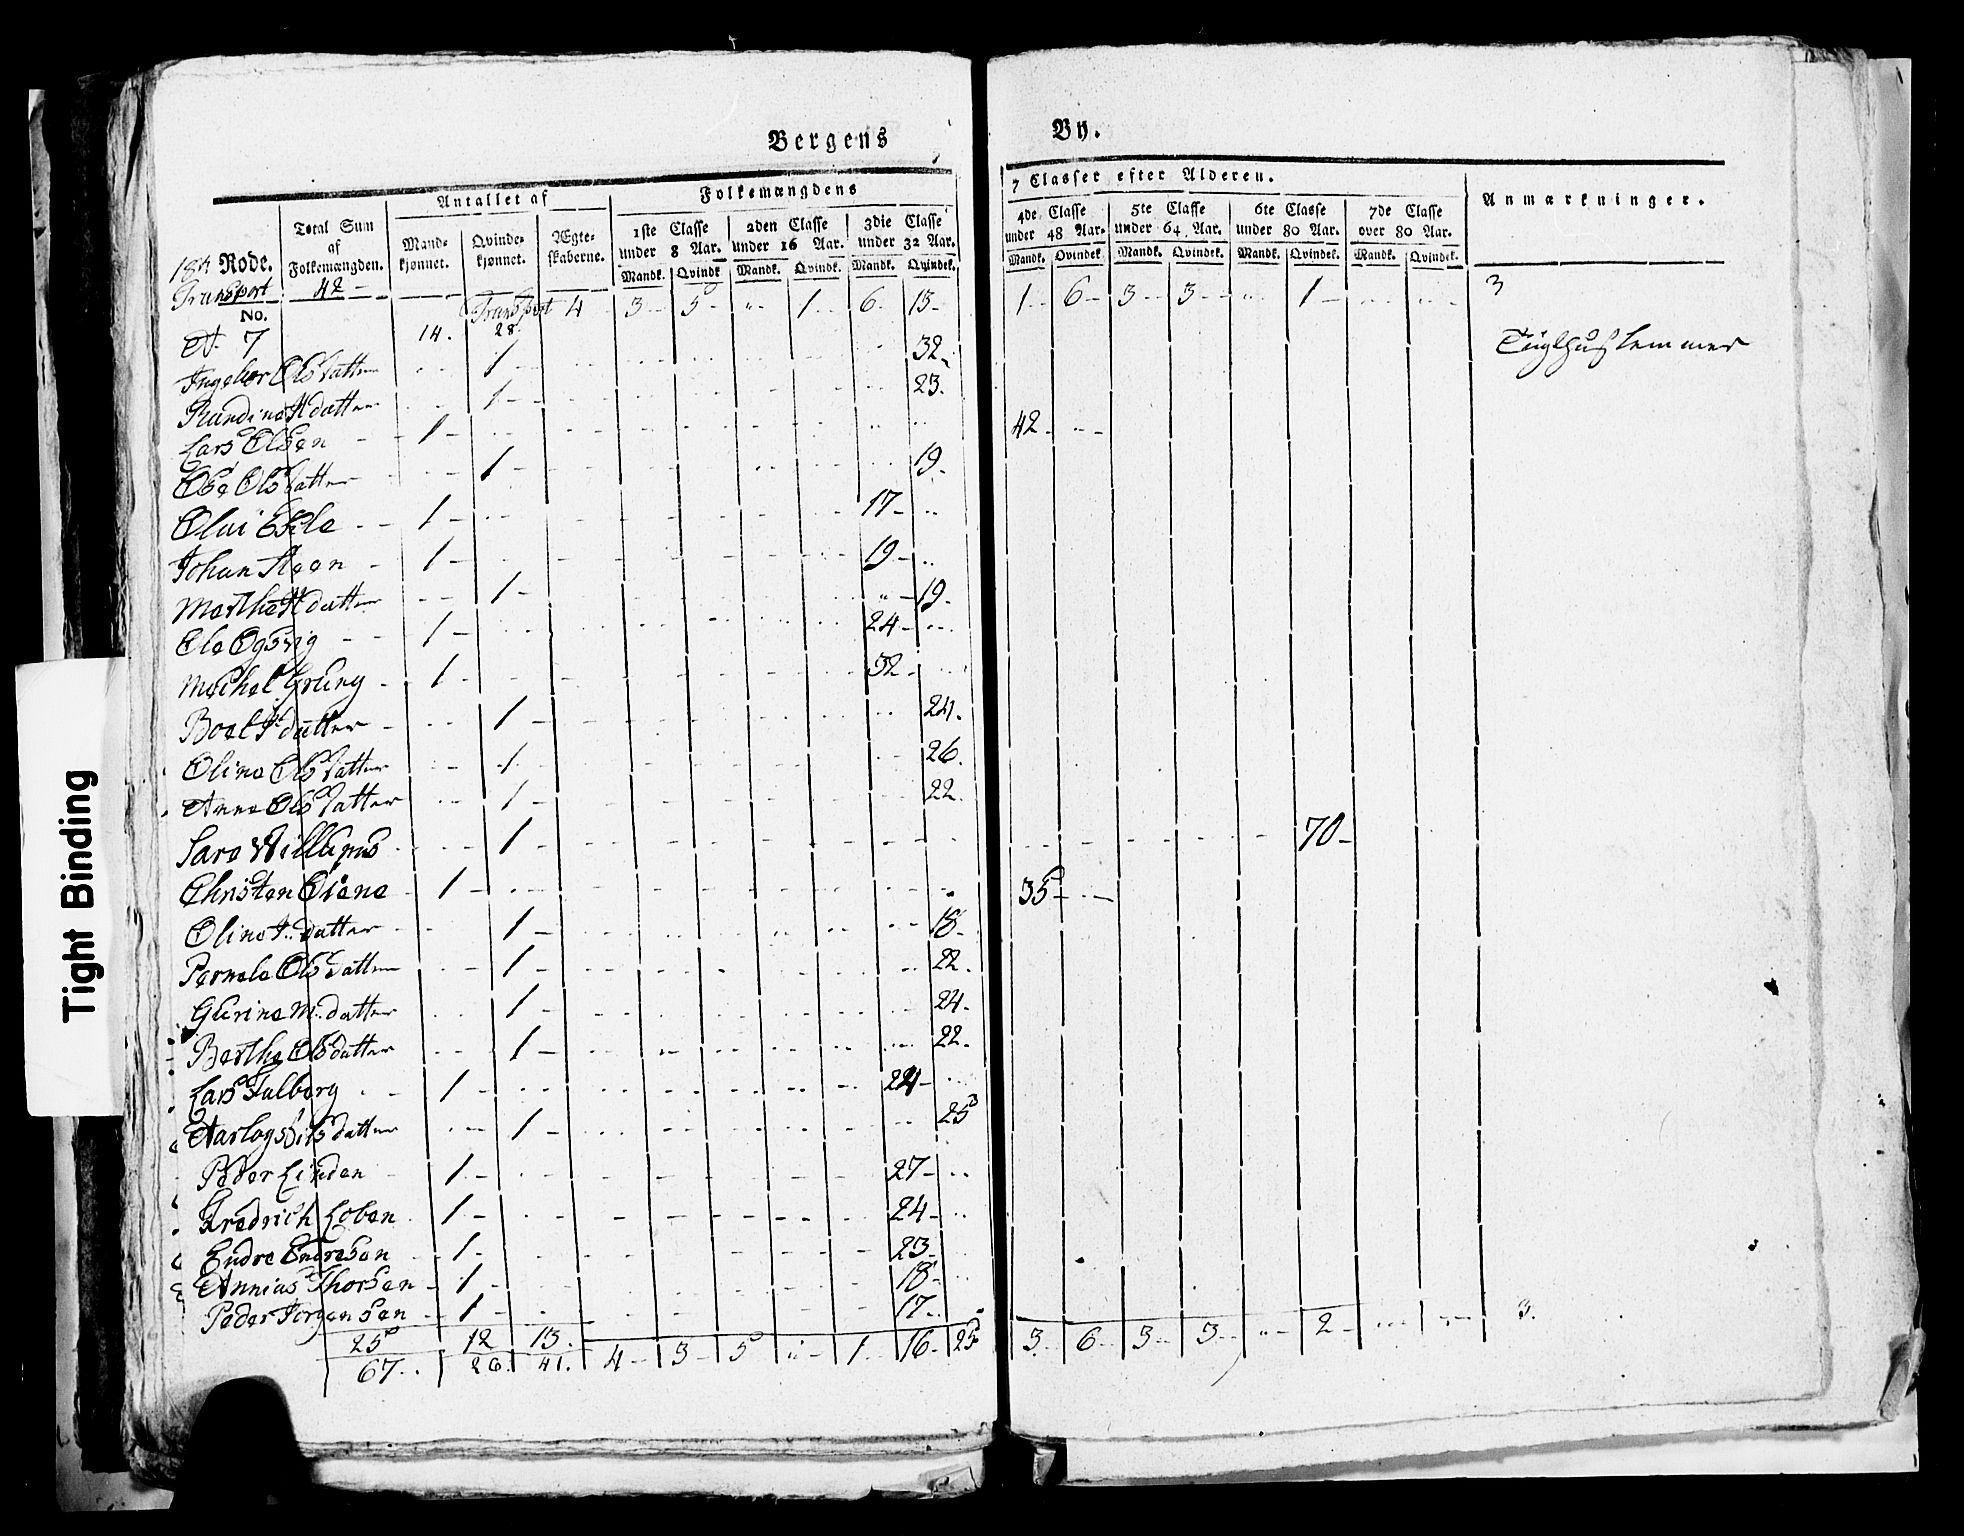 Bergens By.
Antallet af
Folkemængdens 7 Classer efter Alderen.
Anmærkninger.
18de Rode.
Total Sum af Folkemængden.
Mandkjønnet. Qvindekjønnet. Ægteskaberne.
1ste Classe under 8 Aar. 2den Classe under 16 Aar. 3die Classe under 32 Aar. 4de Classe under 48 Aar. 5te Classe under 64 Aar. 6te Classe under 80 Aar. 7de Classe over 80 Aar.
Mandk. Qvindk. Mandk. Qvindk. Mandk. Qvindek. Mandk. Qvindek. Mandk. Qvindek. Mandk. Qvindek. Mandk. Qvindek.
Transport 42 – Transport 4 3 5 „ 1 6 13 1 6 3 3 „ 1 3
No.
N. 7 14. 28.
Ingebor Olsdatter 1 32 Tugthuslemmer
Randine H datter 1 23
Lars Olsen 1 42
Ose Olsdatter 1 19
Olai Eide 1 17
Johan Steen 1 19
Marthe H datter 1 19
Ole Ogsvig 1 24
Michel Gruny 1 32
Boel P datter 1 24
Oline Olsdatter 1 26
Anne Olsdatter 1 22
Sare Willums 1 70
Christen Oiene 1 35
Oline I. datter 1 18
Pernele Olsdatter 1 22
Gurine M. datter 1 24
Berthe Olsdatter 1 22
Lars Talberg 1 24
datter 1 25
Peder Linden 1 27
Fredrich Loben 1 24
Endre Endresen 1 23
Annias Thorsen 1 18
Peder Jørgensen 1 17
25 12 13. 3.
67. 26. 41. 4 3 5 „ 1 16 25 3 6 3 3 „ 2
Tight Binding